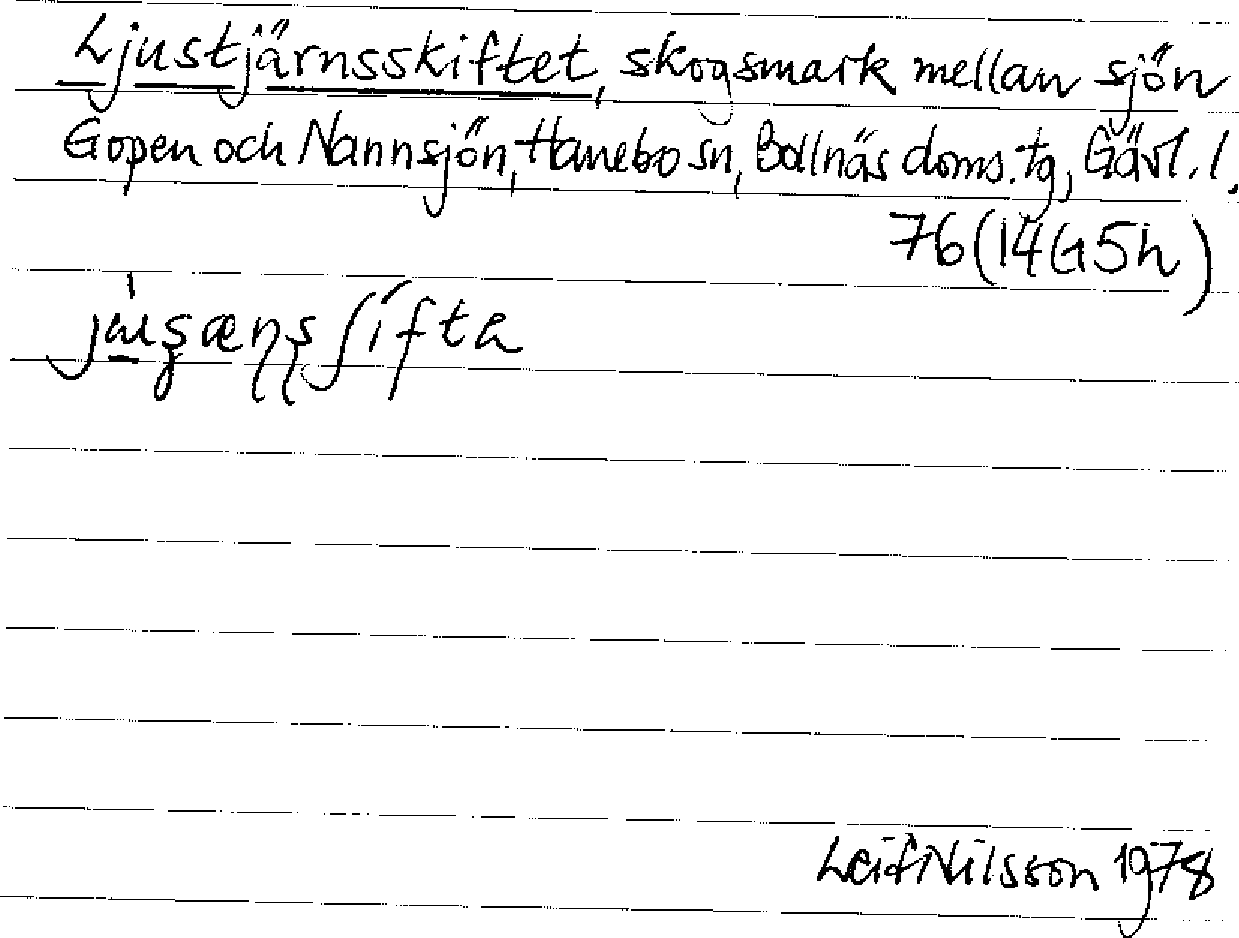 Ljustjärnsskiftet, skogsmark mellan sjön
Gopen och Nannsjön, Hanebo sn, Bollnäs doms.tg, Gävl. l.
76 (14G5h)
Leif Nilsson 1978